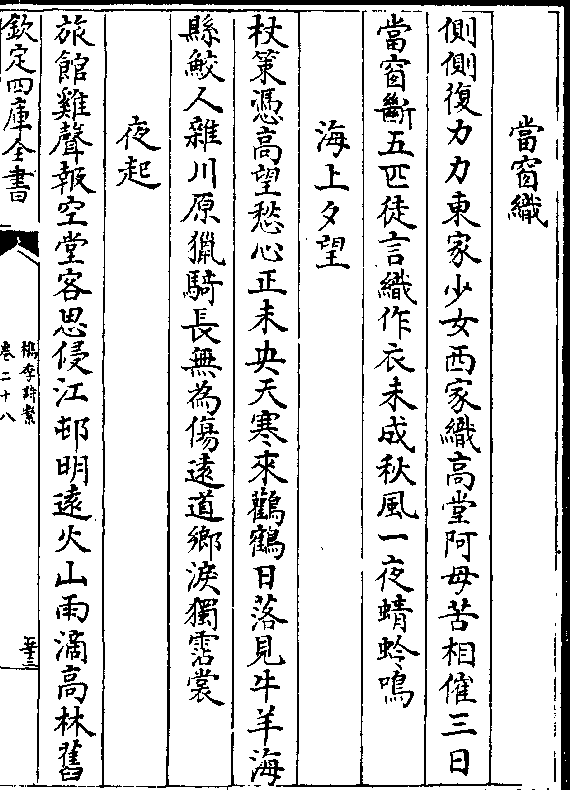 當窗織
側側復力力東家少女西家織高堂阿母苦相催三日
當窗斷五匹徒言織作衣未成秋風一夜蜻蛉鳴
海上夕望
杖策憑高望愁心正未央天寒來鸛鶴日落見牛羊海
縣鮫人雜川原獵騎長無為傷遠道鄉淚獨霑裳
夜起
旅館雞聲報空堂客思侵江邨明遠火山雨滴高林舊
欽定四庫全書
檇李詩繫
卷二十八